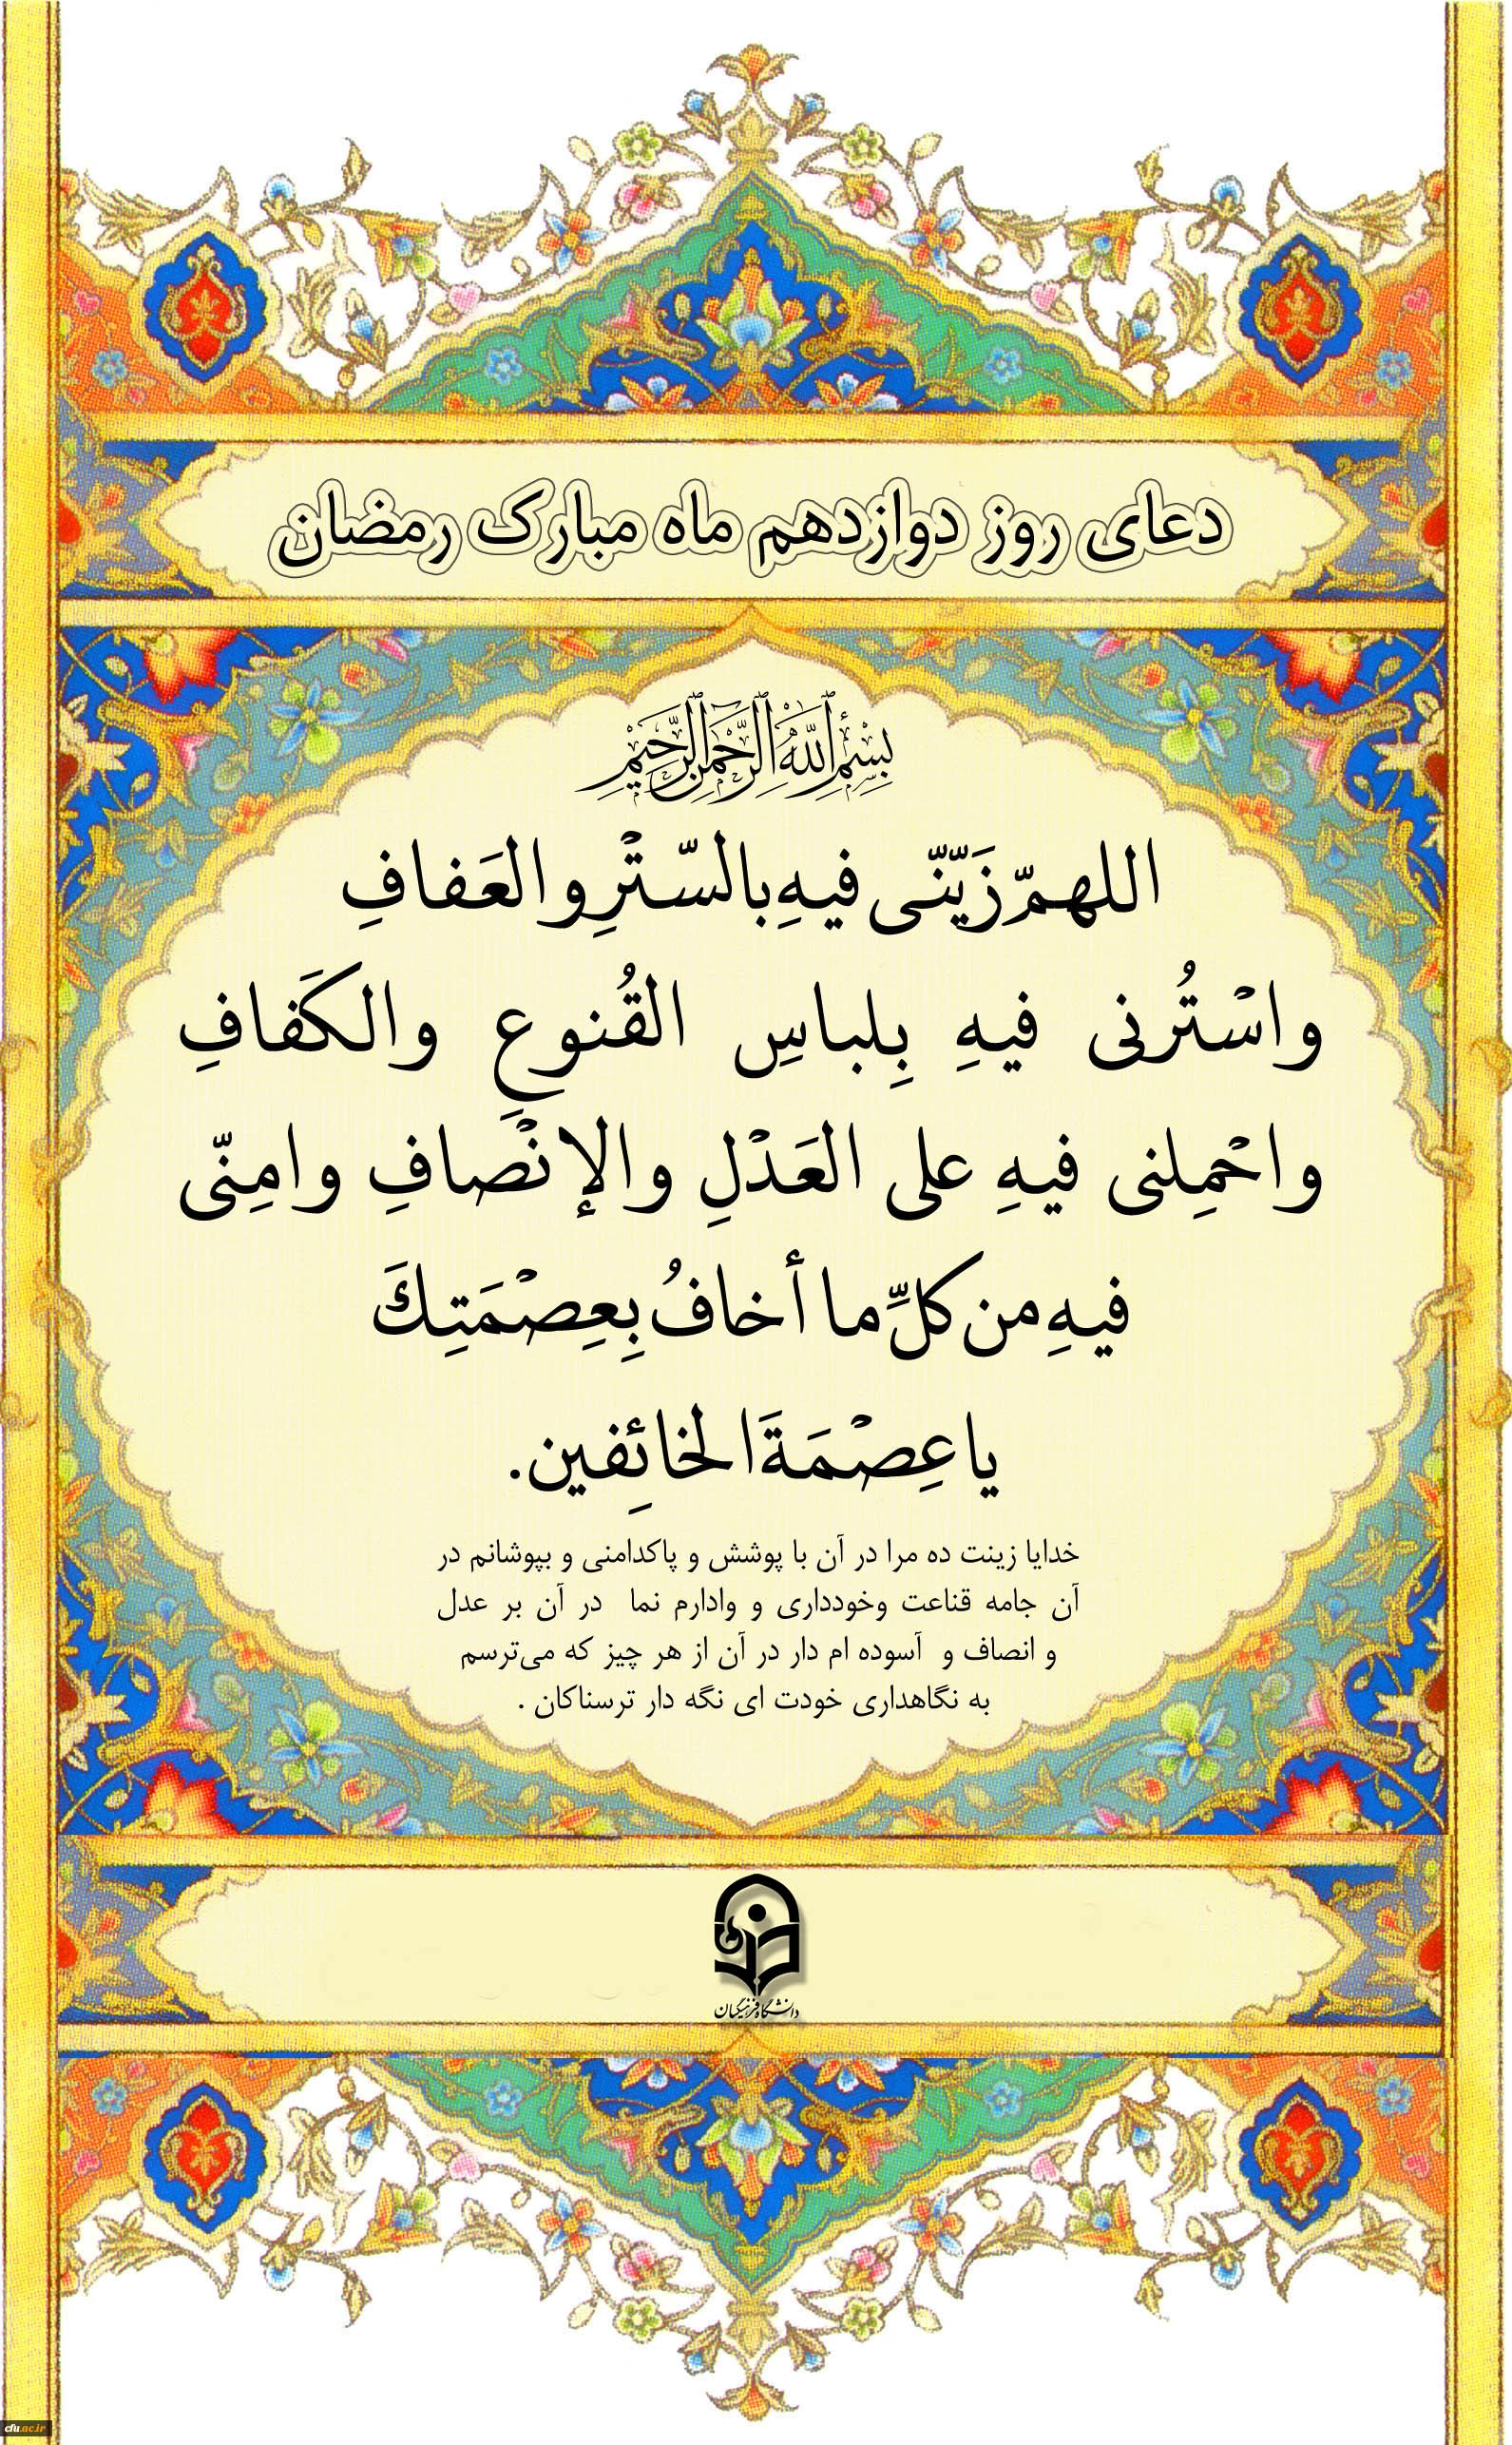 دعای روز دوازدهم ماه مبارک رمضان
بِسْمِ ٱللَّهِ ٱلرَّحْمَٰنِ ٱلرَّحِيمِ
اللهمّ زَیّنّی فیهِ بالسّتْرِ والعَفافِ
واسْتُرنی فیهِ بِلباسِ القُنوعِ والکَفافِ
واحْمِلنی فیهِ علی العَدْلِ والإنْصافِ وامِنّی
فیهِ من کلِّ ما أخافُ بِعِصْمَتِکَ
یا عِصْمَةَ الخائِفین.
خدایا زینت ده مرا در آن با پوشش و پاکدامنی و بپوشانم در
آن جامه قناعت وخودداری و وادارم نما در آن بر عدل
و انصاف و آسوده ام دار در آن از هر چیز که می‌ترسم
به نگاهداری خودت ای نگه دار ترسناکان .
دانشگاه فرهنگیان
cfu.ac.ir